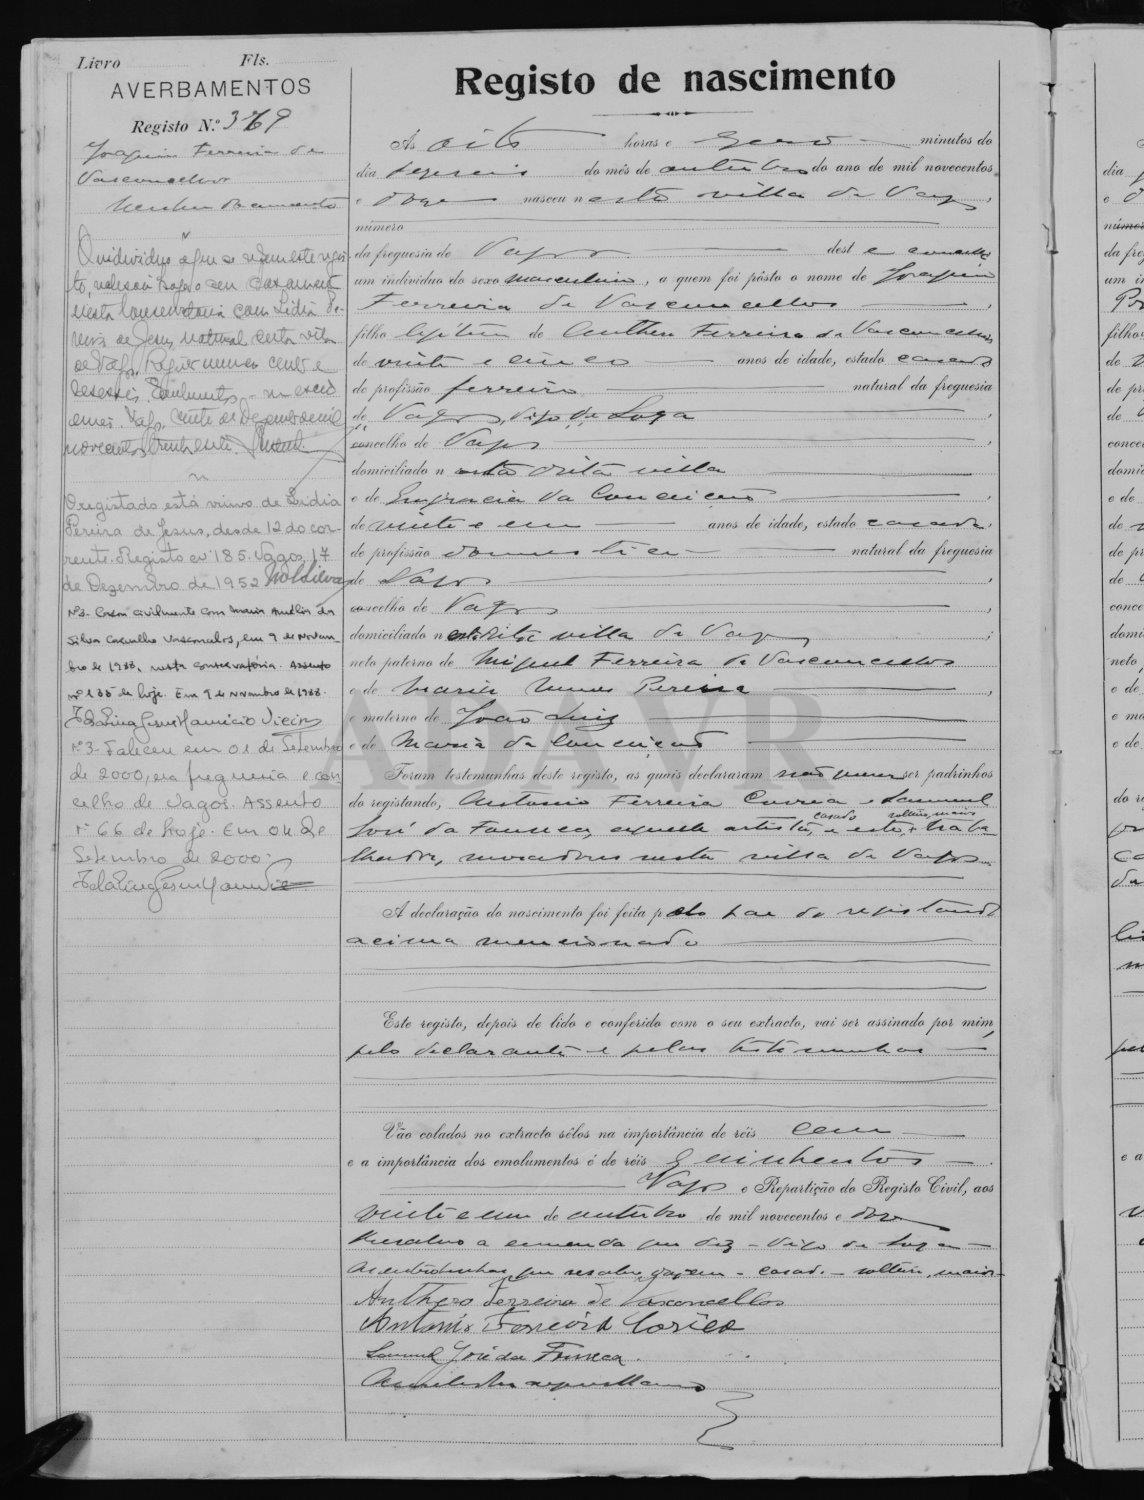 Livro Fls.
AVERBAMENTOS
Registo N.º 369
Joaquim Ferreira de
Vasconcellos
Nenhum documento
nesta Conservatória com Lidia Pe-
reira de Jesus natural desta vila
de Vagos, Registo numero cento e
novecentos trinta e sete.
O registado está viuvo de Lidia
Pereira de Jesus, desde 12 do cor-
rente. Registo nº 185. Vagos, 17
de Dezembro de 1952
Nº2. Casou civilmente com Maria Amélia da
Silva Carvalho Vasconcelos, em 9 de Novem-
bro de 1988, nesta conservatória. Assento
nº 135 de hoje. Em 9 de Novembro de 1988.
Nº 3 - Faleceu em 01 de Setembro
de 2000, na freguesia e con
celho de Vagos. Assento
nº 66 de hoje. Em 04 de
Setembro de 2000.
Registo de nascimento
Às oito horas e zero minutos do
dia dezeseis do mês de outubro do ano de mil novecentos
e doze nasceu n esta villa de Vagos,
número
da freguesia de Vagos dest e concelho
um indivíduo do sexo masculino, a quem foi pôsto o nome de Joaquim
Ferreira de Vasconcellos,
filho legitimo de Anthero Ferreira de Vasconcellos,
de vinte e cinco anos de idade, estado casado
de profissão ferreiro natural da freguesia
de Vagos, digo de Soza,
concelho de Vagos,
domiciliado n esta dita villa
e de Engracia da Conceição,
de vinte e um anos de idade, estado casada,
de profissão domestica natural da freguesia
de Vagos,
concelho de Vagos,
domiciliado n esta dita villa de Vagos;
neto paterno de Miguel Ferreira de Vasconcellos
e de Maria Nunes Pereira,
e materno de João Luiz
e de Maria da Conceição
Foram testemunhas deste registo, as quais declararam não querer ser padrinhos
do registando, Antonio Ferreira Correa e Samuel
casado solteiro, maior
José da Fonseca, aquele artista, e este, traba-
lhador, moradores nesta villa de Vagos.
A declaração do nascimento foi feita pelo pae do registando
acima mencionado
Este registo, depois de lido e conferido com o seu extracto, vai ser assinado por mim,
pelo declarante e pelas testemunhas
Vão colados no extracto sêlos na importância de réis cem
e a importância dos emolumentos é de réis Quinhentos.
Vagos e Repartição do Registo Civil, aos
vinte e um de outubro de mil novecentos e doze
Resalvo a emenda que diz - digo de Soza -
As entrelinhas que resalvo dizem - casado - solteiro, maior -
Anthero Ferreira de Vasconcellos
Antonio Ferreira Corrêa
Samuel José da Fonseca.
ADAVR